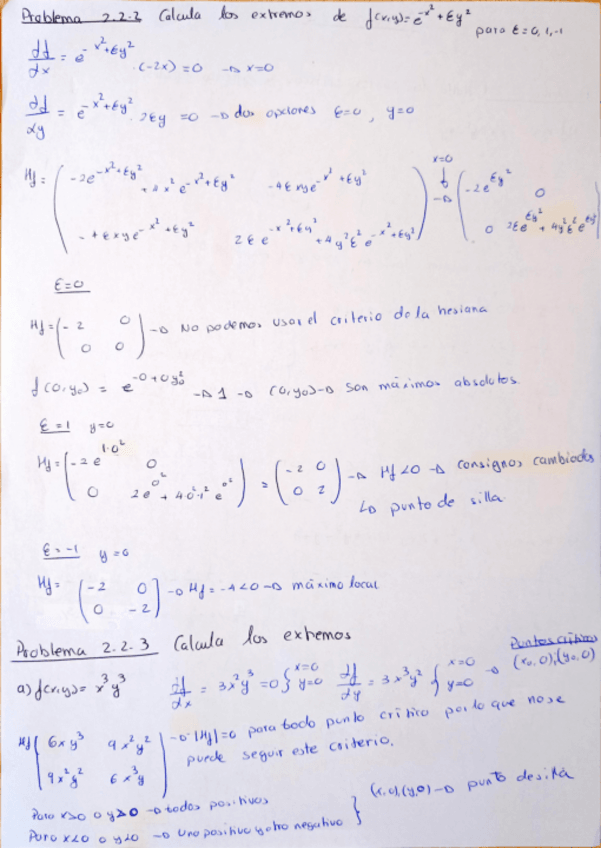 Problema 2.2.2 Calcula los extremos de f(x,y)= e^-x²+εy² para ε=0,1,-1
df/dx = e^-x²+εy² · (-2x) = 0 → x=0
df/dy = e^-x²+εy² · 2εy = 0 → dos opciones ε=0, y=0
Hf = ( -2e^-x²+εy² + 4x² e^-x²+εy² -4εxye^-x²+εy² ) x=0 → ( -2e^εy² 0
-4εxye^-x²+εy² 2εe^-x²+εy² + 4y²ε² e^-x²+εy² 0 2εe^εy² + 4y²ε²e^εy²
ε=0
Hf = ( -2 0 ) → No podemos usar el criterio de la hesiana
0 0
f(0,y₀) = e^-0+0y₀² → 1 → (0,y₀) → Son máximos absolutos
ε=1 y=0
Hf = ( -2e^1·0² 0 ) = ( -2 0 ) → Hf<0 → con signos cambiados
0 2e^0² + 4·0²·1² e^0² 0 2
↳ punto de silla
ε=-1 y=0
Hf = ( -2 0 ) → Hf = -4<0 → máximo local
0 -2
Problema 2.2.3 Calcula los extremos
Puntos críticos
a) f(x,y)= x³y³ df/dx = 3x²y³ =0 { x=0 y=0 df/dy = 3x³y² { x=0 y=0 → (x₀,0),(y₀,0)
Hf ( 6xy³ 9x²y² ) → |Hf|=0 para todo punto crítico por lo que no se
9x²y² 6x³y puede seguir este criterio.
Para x>0 o y>0 → todos positivos
Para x<0 o y<0 → Uno positivo y otro negativo } (x,0),(y,0) → punto de silla